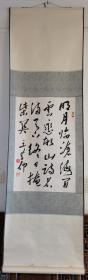 明月临沧海闲
云恋故山诗名
满天下终日掩
柴关